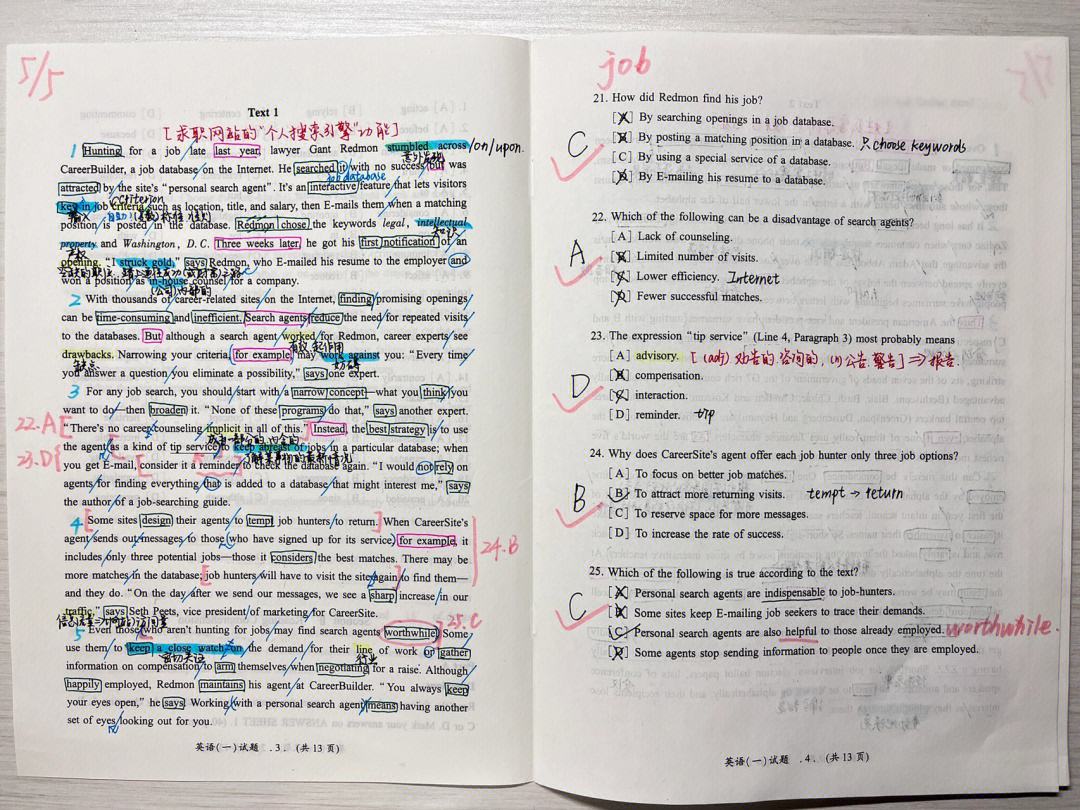 5/5
Text 1
[求职网站的"个人搜索引擎"功能]
1 Hunting for a job late last year, lawyer Gant Redmon stumbled across /on/upon.
意外发现
CareerBuilder, a job database on the Internet. He searched it with no success but was
job database
attracted by the site's "personal search agent". It's an interactive feature that lets visitors
criterion
key in job criteria such as location, title, and salary, then E-mails them when a matching
输入
position is posted in the database. Redmon chose the keywords legal, intellectual
知识
property and Washington, D. C. Three weeks later, he got his first notification of an
产权
opening. "I struck gold," says Redmon, who E-mailed his resume to the employer and
won a position as in-house counsel for a company.
(公司)内部的
2 With thousands of career-related sites on the Internet, finding promising openings
can be time-consuming and inefficient. Search agents reduce the need for repeated visits
to the databases. But although a search agent worked for Redmon, career experts see
有效 起作用
drawbacks. Narrowing your criteria, for example, may work against you: "Every time
缺点
妨碍
you answer a question you eliminate a possibility," says one expert.
3 For any job search, you should start with a narrow concept—what you think you
want to do—then broaden it. "None of these programs do that," says another expert.
22.A[ "There's no career counseling implicit in all of this." Instead, the best strategy is to use
23.D{ the agent as a kind of tip service to keep abreast of jobs in a particular database; when
了解某事物的最新情况
you get E-mail, consider it a reminder to check the database again. "I would not rely on
agents for finding everything that is added to a database that might interest me," says
the author of a job-searching guide.
4 [Some sites design their agents to tempt job hunters to return.] When CareerSite's
agent sends out messages to those who have signed up for its service, for example, it
includes only three potential jobs—those it considers the best matches. There may be
24.B
more matches in the database; job hunters will have to visit the site again to find them—
and they do. "On the day after we send our messages, we see a sharp increase in our
traffic," says Seth Peets, vice president of marketing for CareerSite.
25.C
5 Even those who aren't hunting for jobs may find search agents worthwhile. Some
use them to keep a close watch on the demand for their line of work or gather
密切关注
行业
information on compensation to arm themselves when negotiating for a raise. Although
happily employed, Redmon maintains his agent at CareerBuilder. "You always keep
your eyes open," he says. Working with a personal search agent means having another
set of eyes looking out for you.
英语(一)试题 .3. (共13页)
job
21. How did Redmon find his job?
[A] By searching openings in a job database.
[B] By posting a matching position in a database. 只chose keywords
C
[C] By using a special service of a database.
[D] By E-mailing his resume to a database.
22. Which of the following can be a disadvantage of search agents?
[A] Lack of counseling.
A
[B] Limited number of visits.
[C] Lower efficiency. Internet
[D] Fewer successful matches.
23. The expression "tip service" (Line 4, Paragraph 3) most probably means
[A] advisory. [(adj) 劝告的.咨询的, (n)公告.警告] ⇒报告.
[B] compensation.
D
[C] interaction.
[D] reminder. tip
24. Why does CareerSite's agent offer each job hunter only three job options?
[A] To focus on better job matches.
B
[B] To attract more returning visits. tempt → return
[C] To reserve space for more messages.
[D] To increase the rate of success.
25. Which of the following is true according to the text?
[A] Personal search agents are indispensable to job-hunters.
C
[B] Some sites keep E-mailing job seekers to trace their demands.
[C] Personal search agents are also helpful to those already employed. worthwhile.
[D] Some agents stop sending information to people once they are employed.
英语(一)试题 .4. (共13页)